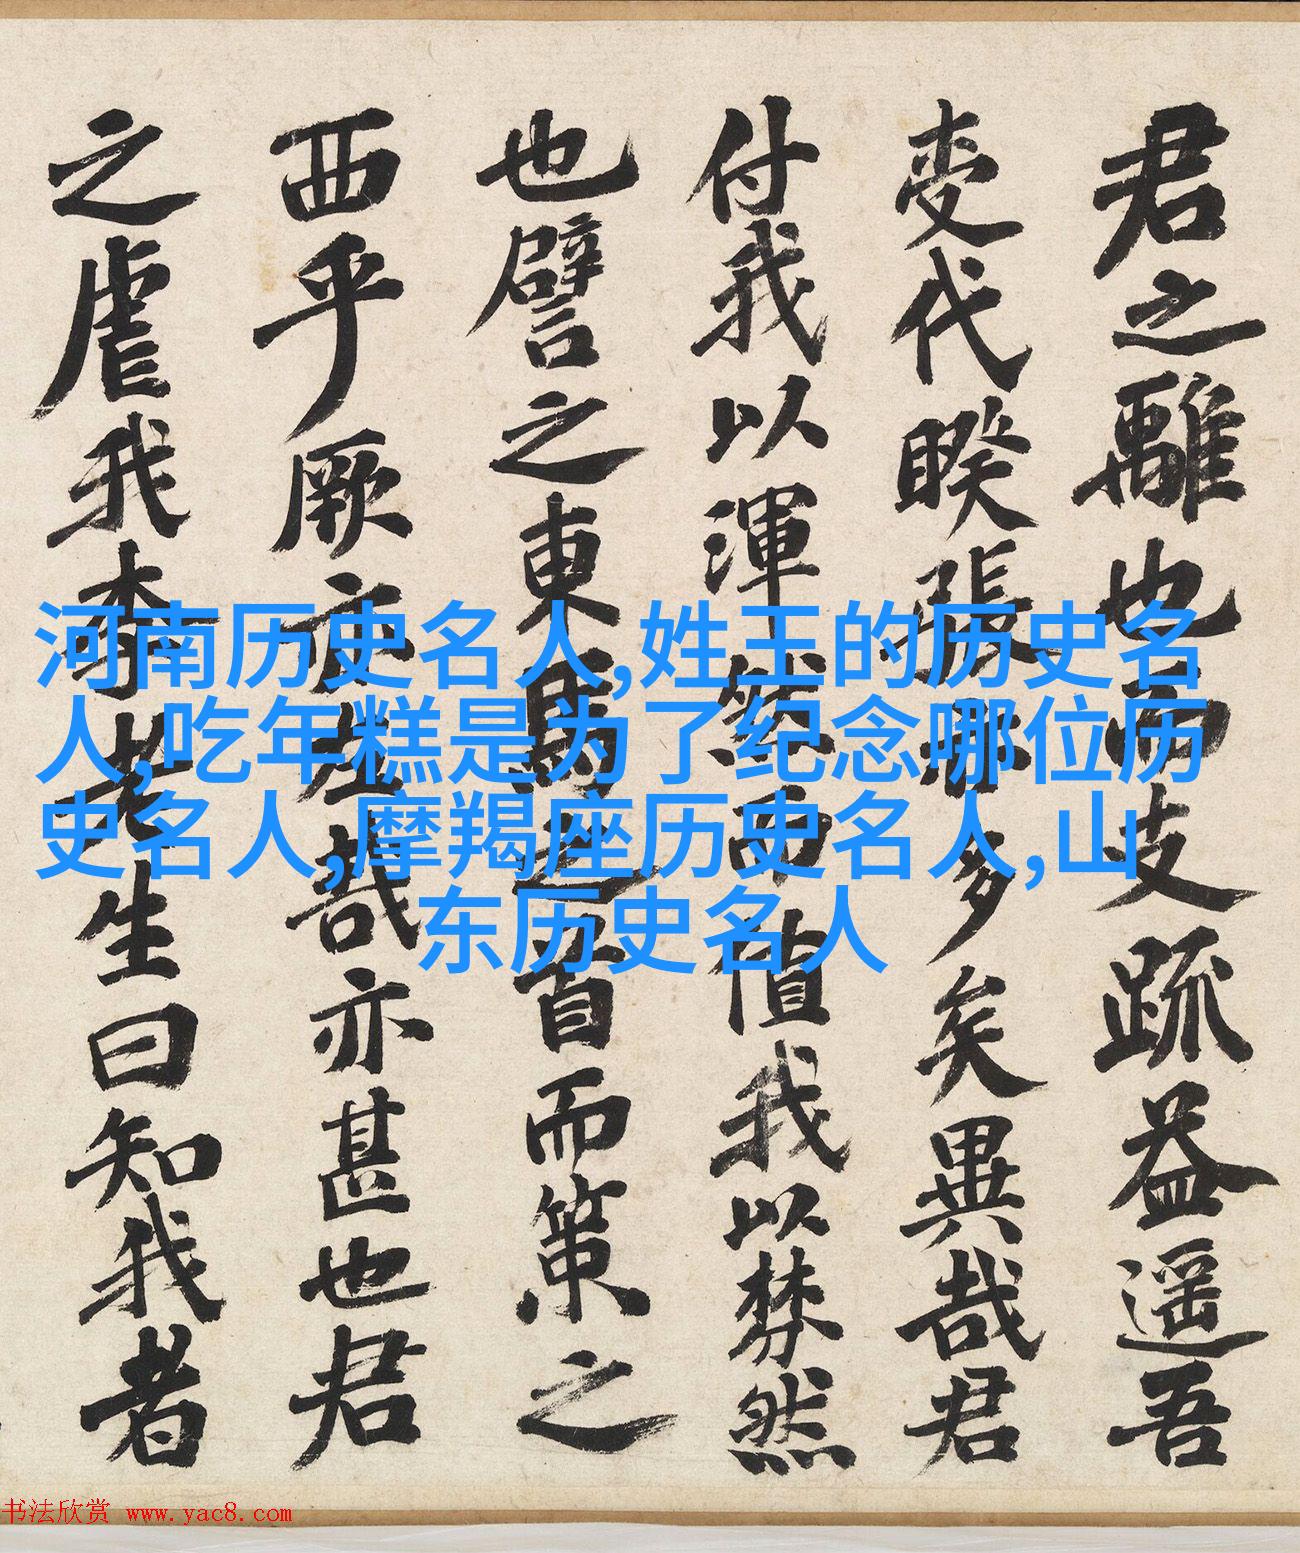 君之離也而支疏益遥吾
变代暌張那多矣異哉君
付我以渾然而值我以棼然
也譬之東馬之首而策之
西乎厥亦左哉亦甚也君
之虐我黍老生曰知我者
河南历史名人,姓王的历史名
人,吃年糕是为了纪念哪位历
史名人,摩羯座历史名人,山
东历史名人
书法欣赏 www.yac8.com